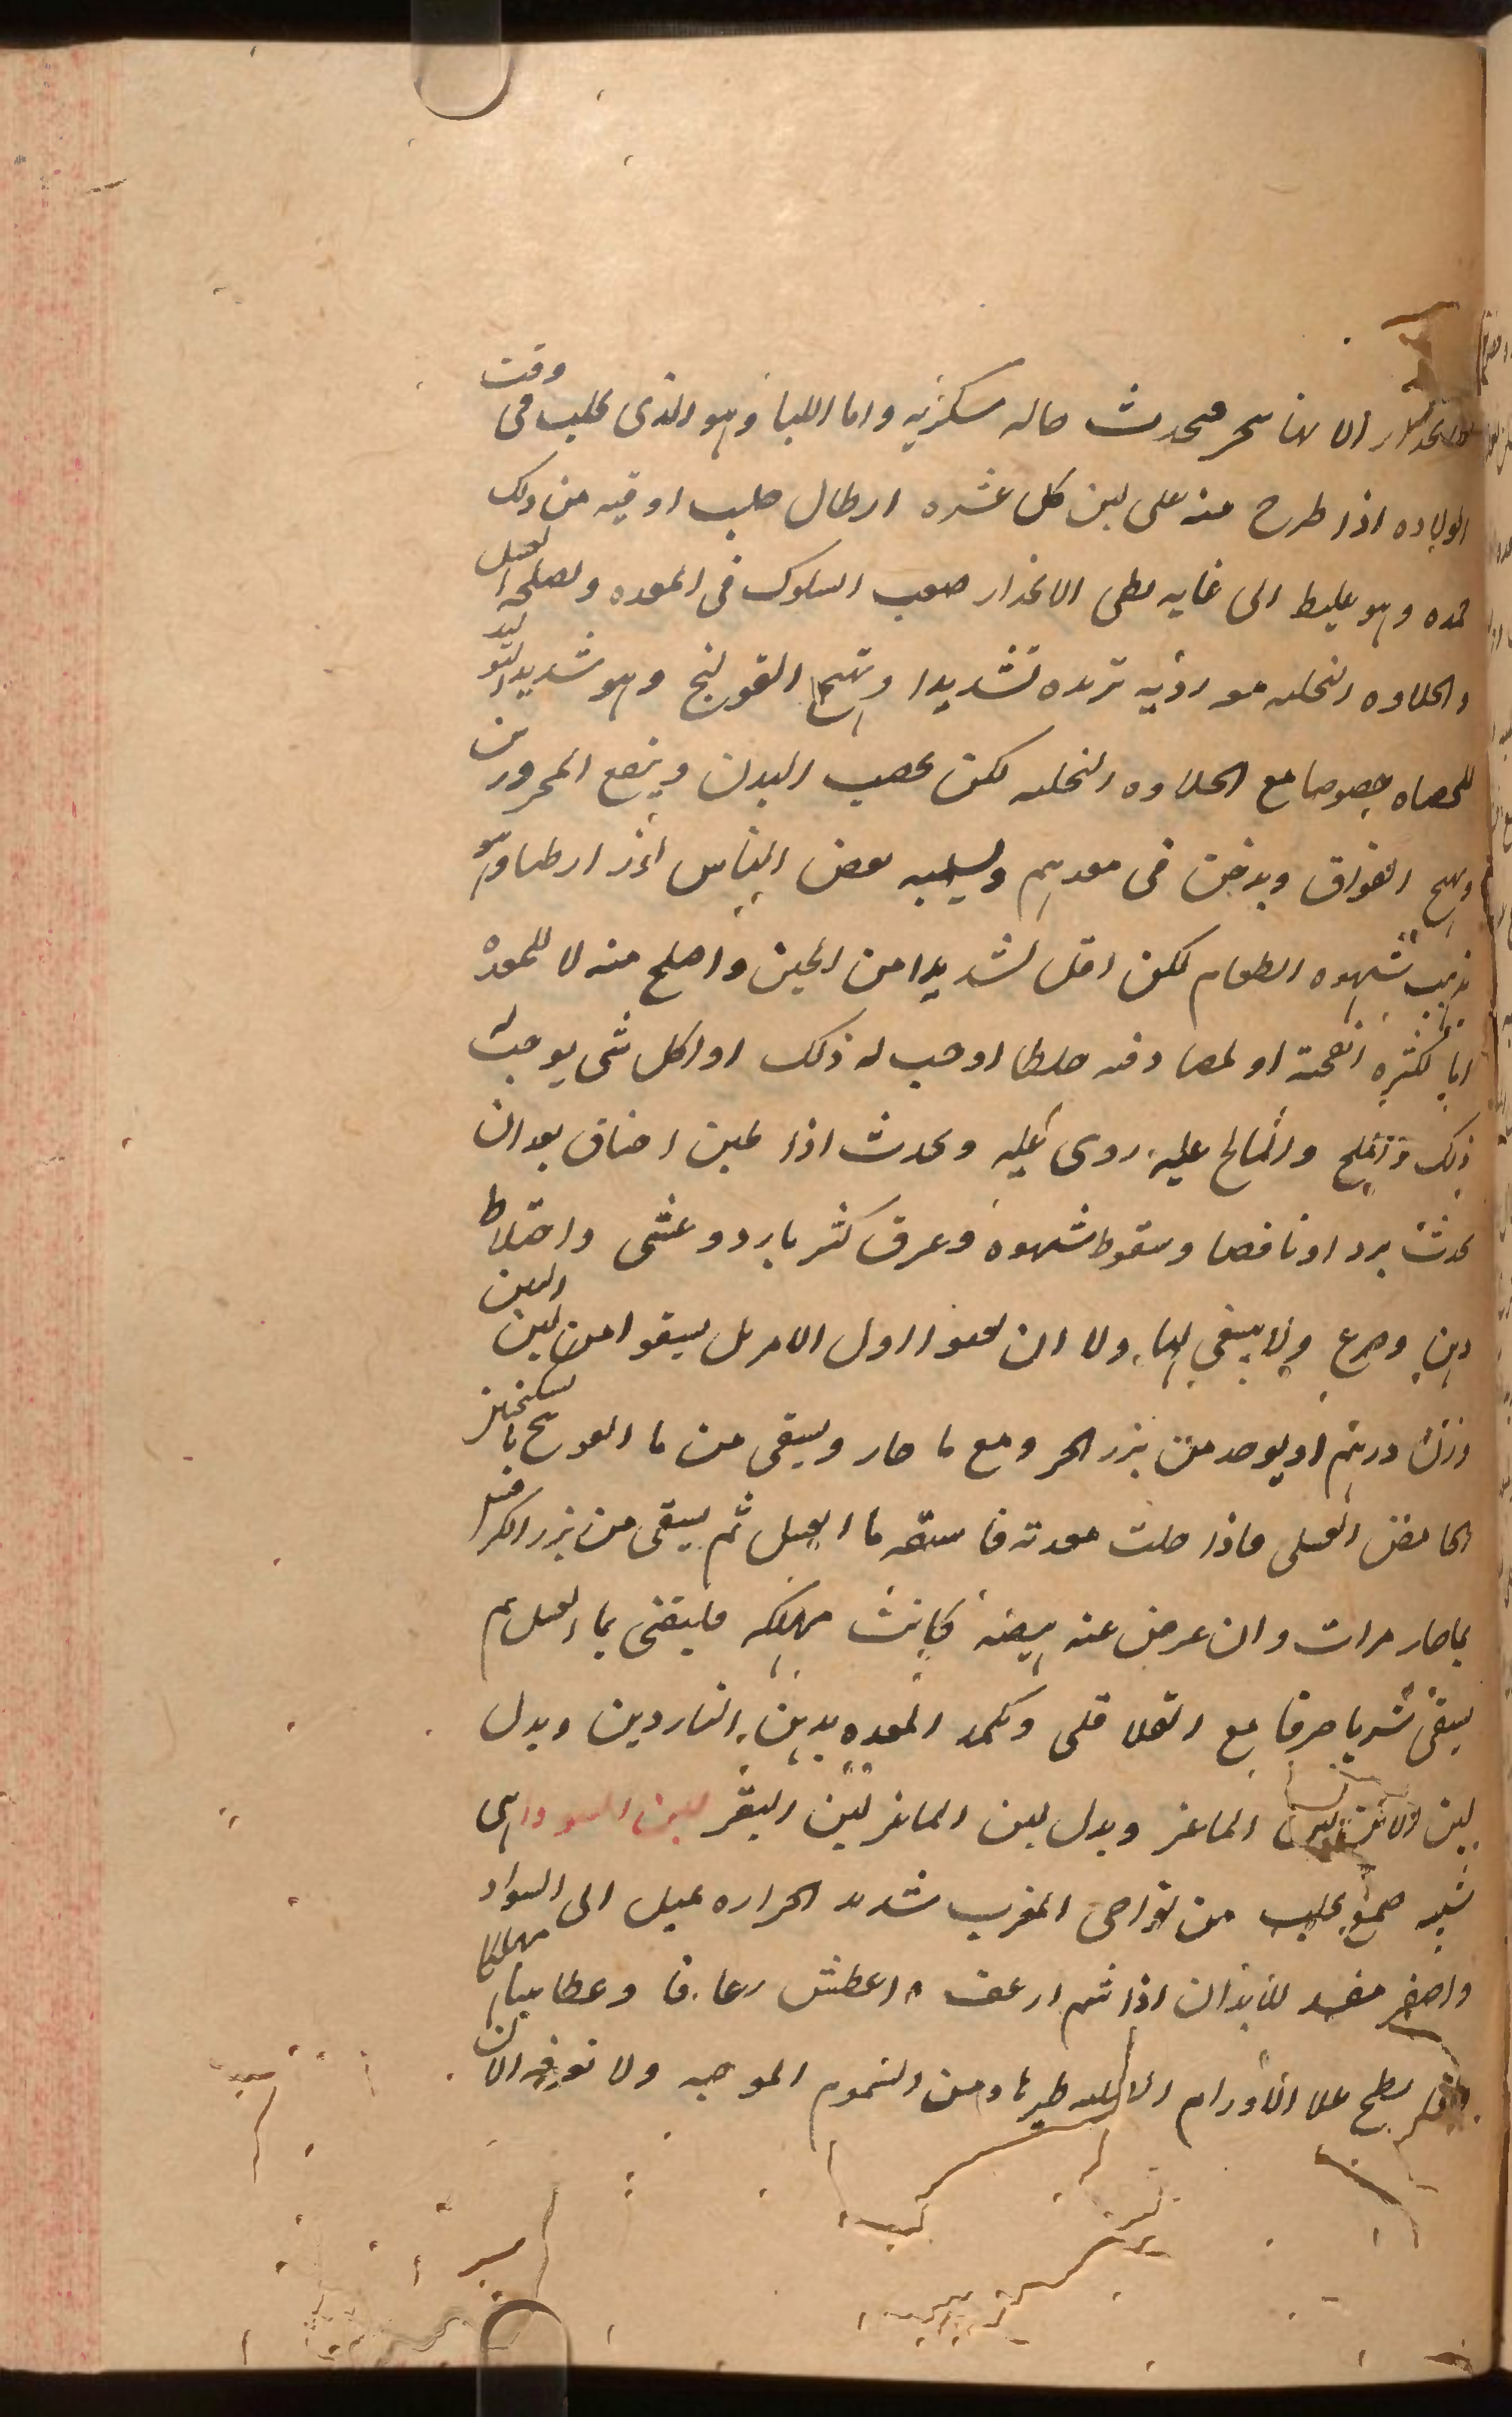 الانحدار الا انها سحر فتحدث حاله سكريه واما اللبا وهو الذى يحلب فى وقت
الولاده اذا طرح منه على لبن كل عشره ارطال حلب اوقيه من ذلك
جمده وهو غليظ الى غايه بطى الانحدار صعب السلوك فى المعده ويصلحه العسل
والحلاوه النحليه مو رديه تزيده تشديدا وتهيج القولنج وهو شديد التوليد
للحصاه خصوصا مع الحلاوه النحليه لكن يخصب البدن وينفع المحرورين
ويهيج الفواق ويدخن فى معدهم ويسلبه بعض الناس اذا
يذهب شهوه الطعام لكن اقل تشديدا من الجبن واصلح منه لا للمعدة
اما لكثره انفحته او لمصادفه خلطا اوجب له ذلك او اكل شى يوجب له
ذلك والمالح عليه ردى ويحدث اذا تجبن اخناق بعد ان
يحدث بردا ونافضا وسقوط شهوة وعرق كثير بارد وغشى واختلاط
ذهن وصرع ولا ينبغى لها ولا ان يقيوا اول الامر بل يسقوا من لبن التين
وزن درهم او يوخذ من بزر الحر ومع ما حار ويسقى من ما الفوتنج بالسكنجبين
الحامض العسلى فاذا خلت معدته فاسقه ما العسل ثم يسقى من بزر الكرفس
بما حار مرات وان عرض عنه هيضه كانت مهلكه فليقى بما العسل ثم
يسقى شربا صرفا مع الفلافلى وتكمد المعده بدهن الناردين وبدل
لبن الاتن لبن الماعز وبدل لبن الماعز لبن البقر لبن السودا هى
شبه صمغ يجلب من نواحى المغرب شديد الحراره يميل الى السواد
واصفر مفسد للابدان اذا شم ارعف واعطش رعافا وعطاسا مهلكا
يطلى على الاورام ومن السموم الموحيه ولا نوفيه الان